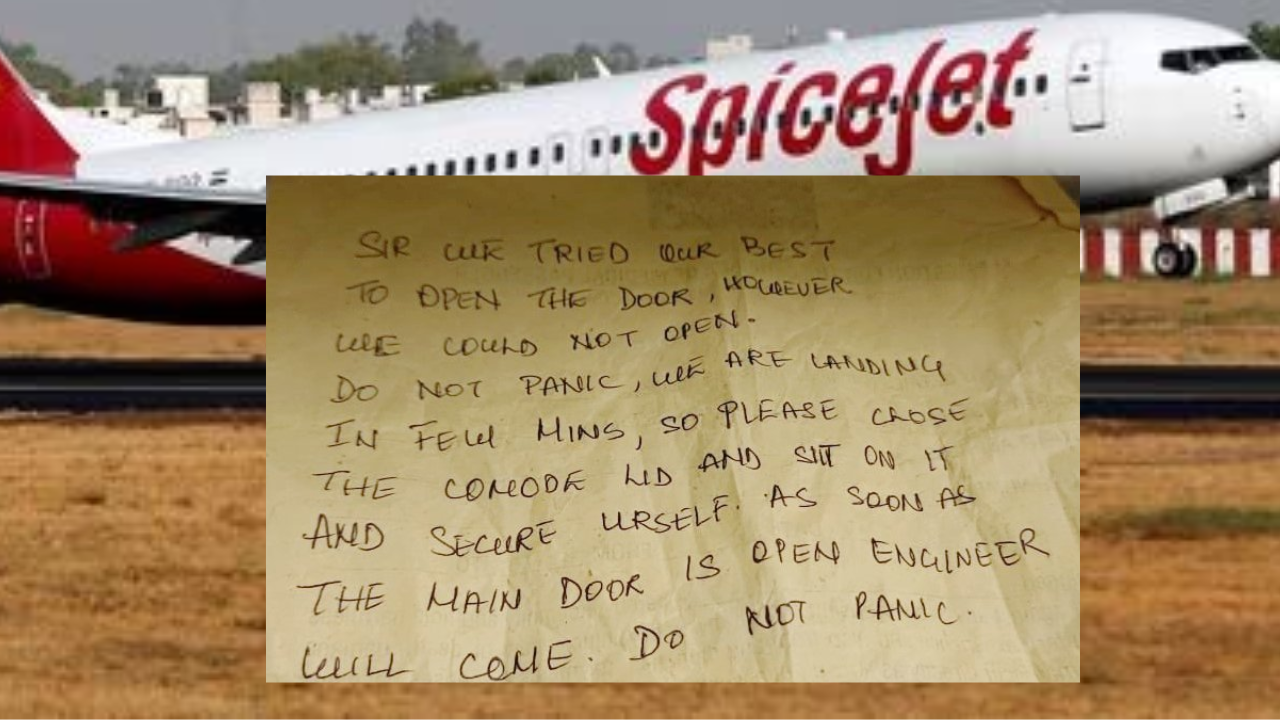 SpiceJet
SIR WE TRIED OUR BEST
TO OPEN THE DOOR, HOWEVER
WE COULD NOT OPEN.
DO NOT PANIC, WE ARE LANDING
IN FEW MINS, SO PLEASE CLOSE
THE COMODE LID AND SIT ON IT
AND SECURE URSELF. AS SOON AS
THE MAIN DOOR IS OPEN ENGINEER
WILL COME. DO NOT PANIC.